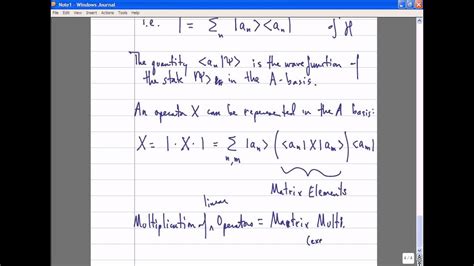 Note1 - Windows Journal
File Edit View Insert Actions Tools Help
i.e. 1 = Σ_n |a_n><a_n| of H
The quantity <a_n|Ψ> is the wavefunction of
the state |Ψ> in the A-basis.
An operator X can be represented in the A basis:
X = 1 · X · 1 = Σ_{n,m} |a_n> (<a_n|X|a_m>) <a_m|
Matrix Elements
linear
Multiplication of ∧ Operators = Matrix Mult.
(exe